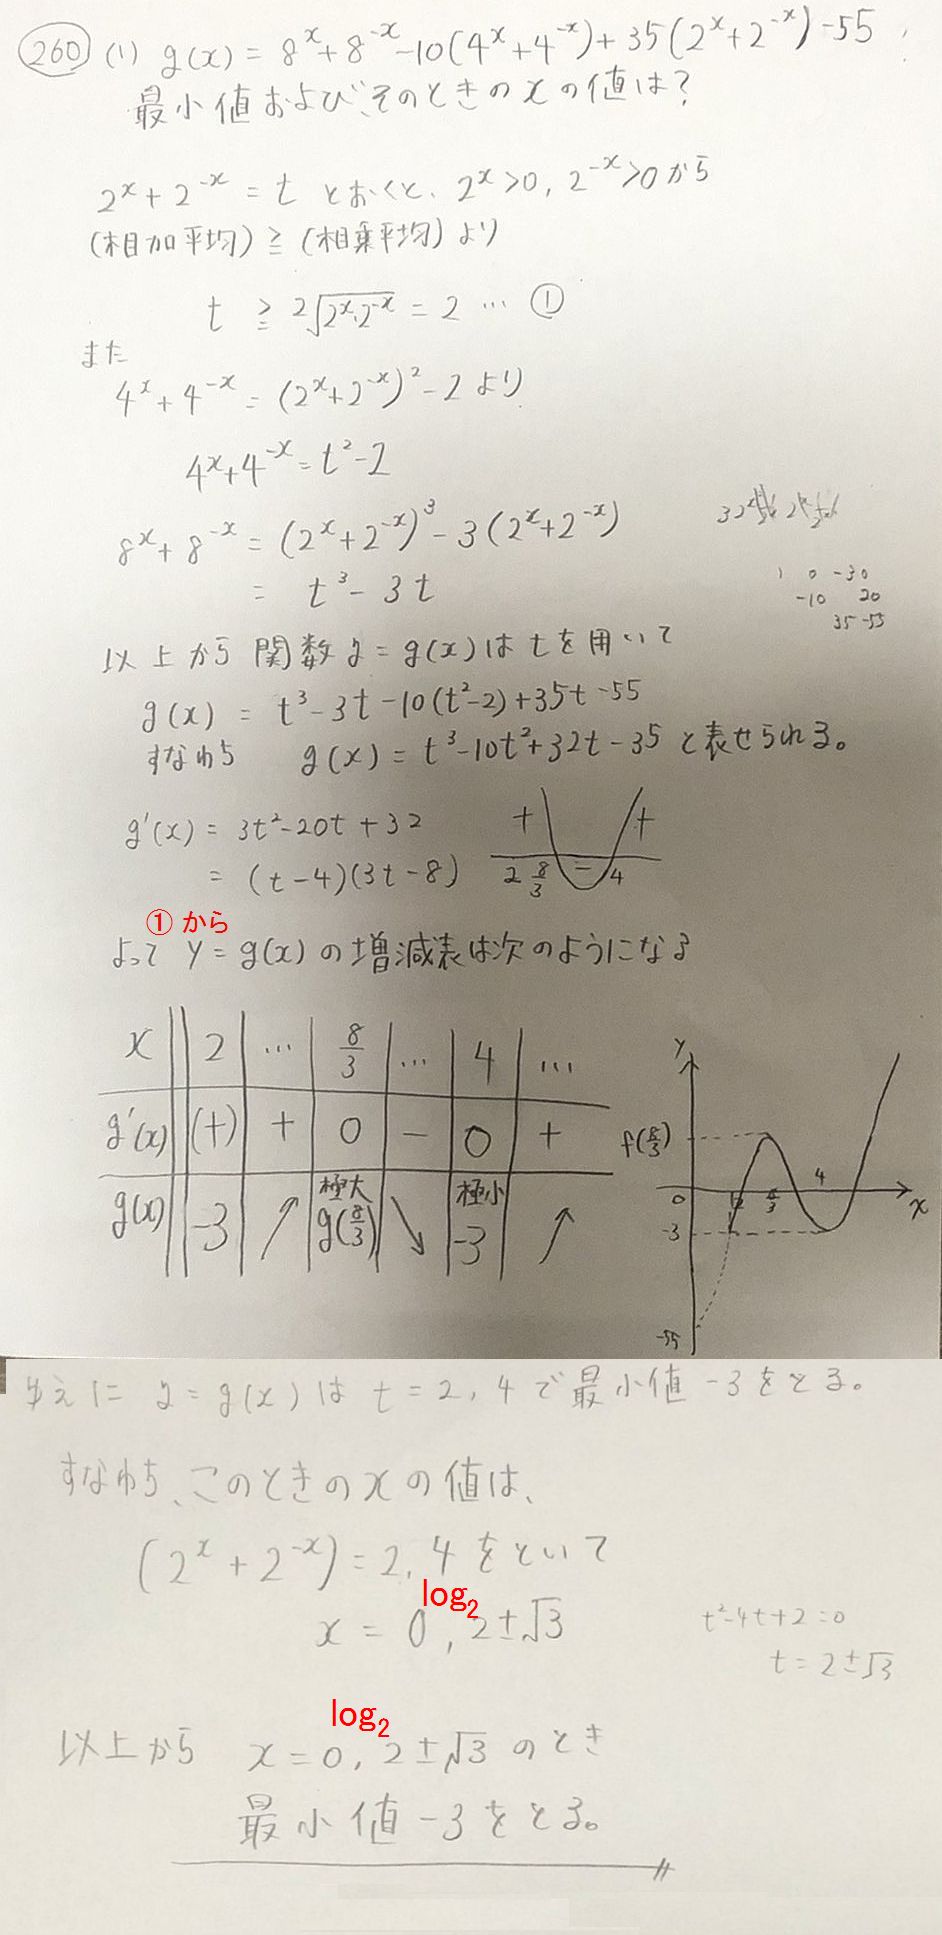 260 (1) g(x) = 8^x + 8^-x - 10(4^x + 4^-x) + 35(2^x + 2^-x) - 55
最小値および、そのときのxの値は?
2^x + 2^-x = t とおくと、2^x > 0, 2^-x > 0 から
(相加平均) ≧ (相乗平均) より
t ≧ 2√(2^x・2^-x) = 2 … ①
また
4^x + 4^-x = (2^x + 2^-x)^2 - 2 より
4^x + 4^-x = t^2 - 2
8^x + 8^-x = (2^x + 2^-x)^3 - 3(2^x + 2^-x)
= t^3 - 3t
1 0 -30
-10 20
35 -55
以上から 関数 y = g(x) は t を用いて
g(x) = t^3 - 3t - 10(t^2 - 2) + 35t - 55
すなわち g(x) = t^3 - 10t^2 + 32t - 35 と表せられる。
g'(x) = 3t^2 - 20t + 32
= (t - 4)(3t - 8)
+ - +
2 8/3 4
① から
よって y = g(x) の増減表は次のようになる
x 2 … 8/3 … 4 …
g'(x) (+) + 0 - 0 +
g(x) -3 ↗ 極大 g(8/3) ↘ 極小 -3 ↗
y
f(8/3)
4
0 2 8/3 x
-3
-55
ゆえに y = g(x) は t = 2, 4 で最小値 -3 をとる。
すなわち、このときのxの値は、
(2^x + 2^-x) = 2, 4 をといて
x = 0, log2 2±√3
t^2 - 4t + 2 = 0
t = 2±√3
以上から x = 0, log2 2±√3 のとき
最小値 -3 をとる。